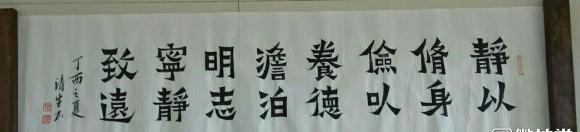 靜以
脩身
儉以
養德
澹泊
明志
寧靜
致遠
丁酉之夏